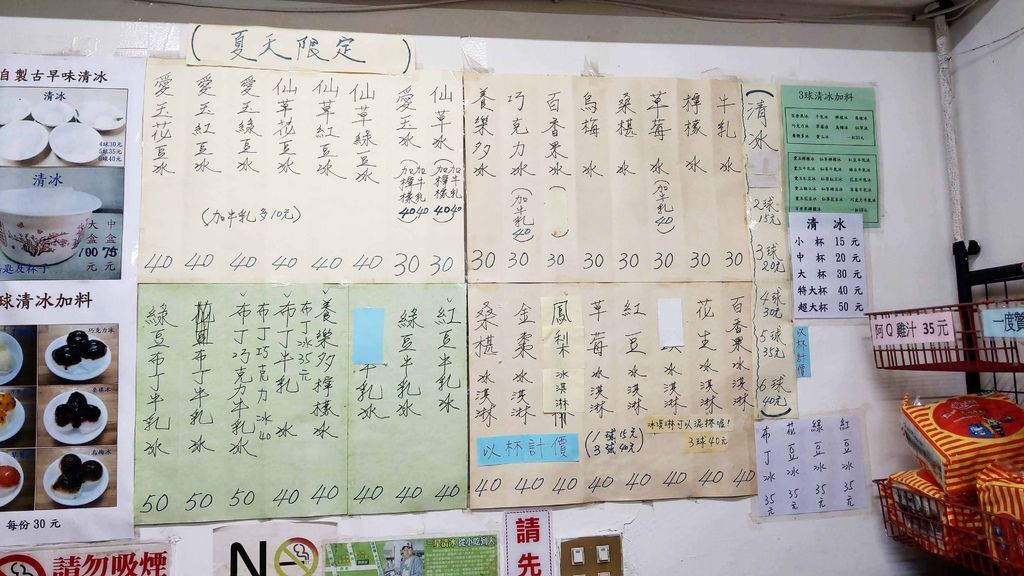 (夏天限定)
愛玉花豆冰 40
愛玉紅豆冰 40
愛玉綠豆冰 40
仙草花豆冰 40
仙草紅豆冰 40
仙草綠豆冰 40
愛玉冰 (加檸檬40 加牛乳40) 30
仙草冰 (加檸檬40 加牛乳40) 30
(加牛乳多10元)
養樂多冰 30
巧克力冰 (加牛乳40) 30
百香果冰 30
烏梅冰 30
桑椹冰 30
草莓冰 (加牛乳40) 30
檸檬冰 30
牛乳冰 30
(清冰
2球15元
3球20元
4球30元
5球35元
6球40元)
以杯計價
綠豆布丁牛乳冰 50
紅豆布丁牛乳冰 50
布丁巧克力牛乳冰 50
布丁巧克力冰40
布丁牛乳冰 40
布丁冰35元
養樂多檸檬冰 40
牛乳冰 40
綠豆牛乳冰 40
紅豆牛乳冰 40
桑椹冰淇淋 40
金棗冰淇淋 40
鳳梨冰淇淋 40
草莓冰淇淋 40
紅豆冰淇淋 40
冰淇淋 40
花生冰淇淋 40
百香果冰淇淋 40
以杯計價
(1球15元
3球40元)
冰淇淋可以混搭喔!
3球40元
自製古早味清冰
清冰
4球30元
5球35元
6球40元
清冰
大盒100元
中盒75元
球清冰加料
巧克力冰
桑椹冰
烏梅冰
每份30元
3球清冰加料
清 冰
小 杯 15 元
中 杯 20 元
大 杯 30 元
特大杯 40 元
超大杯 50 元
布丁冰 35元
花豆冰 35元
綠豆冰 35元
紅豆冰 35元
阿Q雞汁 35元
一度贊
請勿吸煙
NO
星清冰 從小吃到大
請先